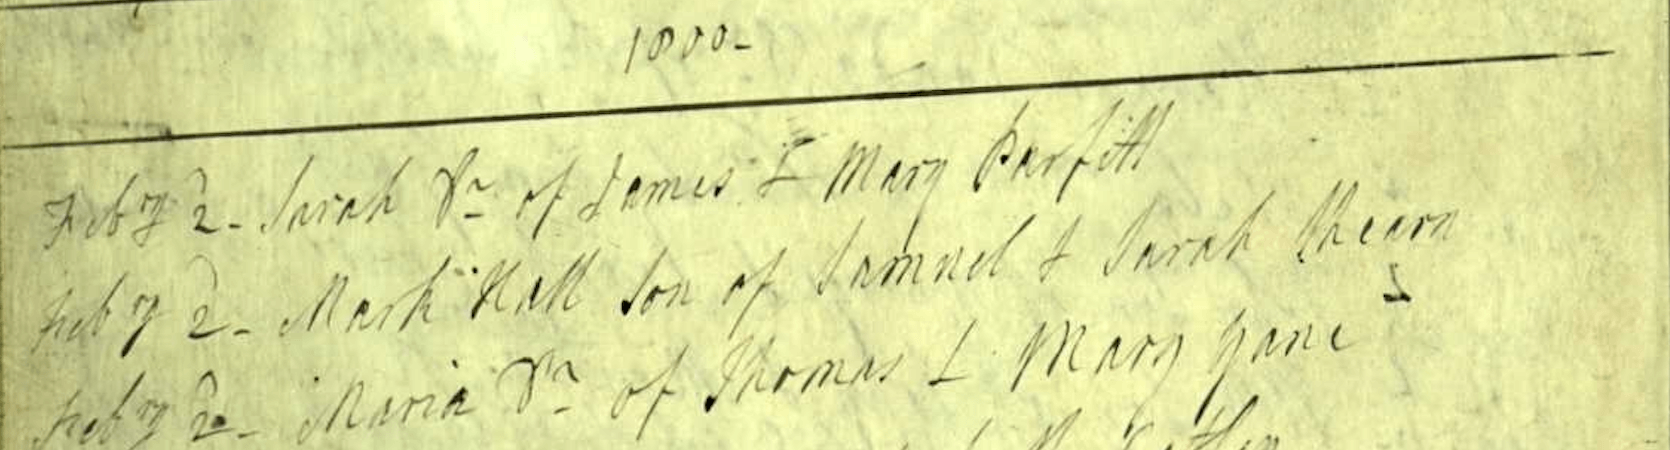 1800-
Feby 2- Sarah Dr of James & Mary Parfitt
Feby 2- Mark Hall Son of Samuel & Sarah Shearn
Feby 2- Maria Dr of Thomas & Mary